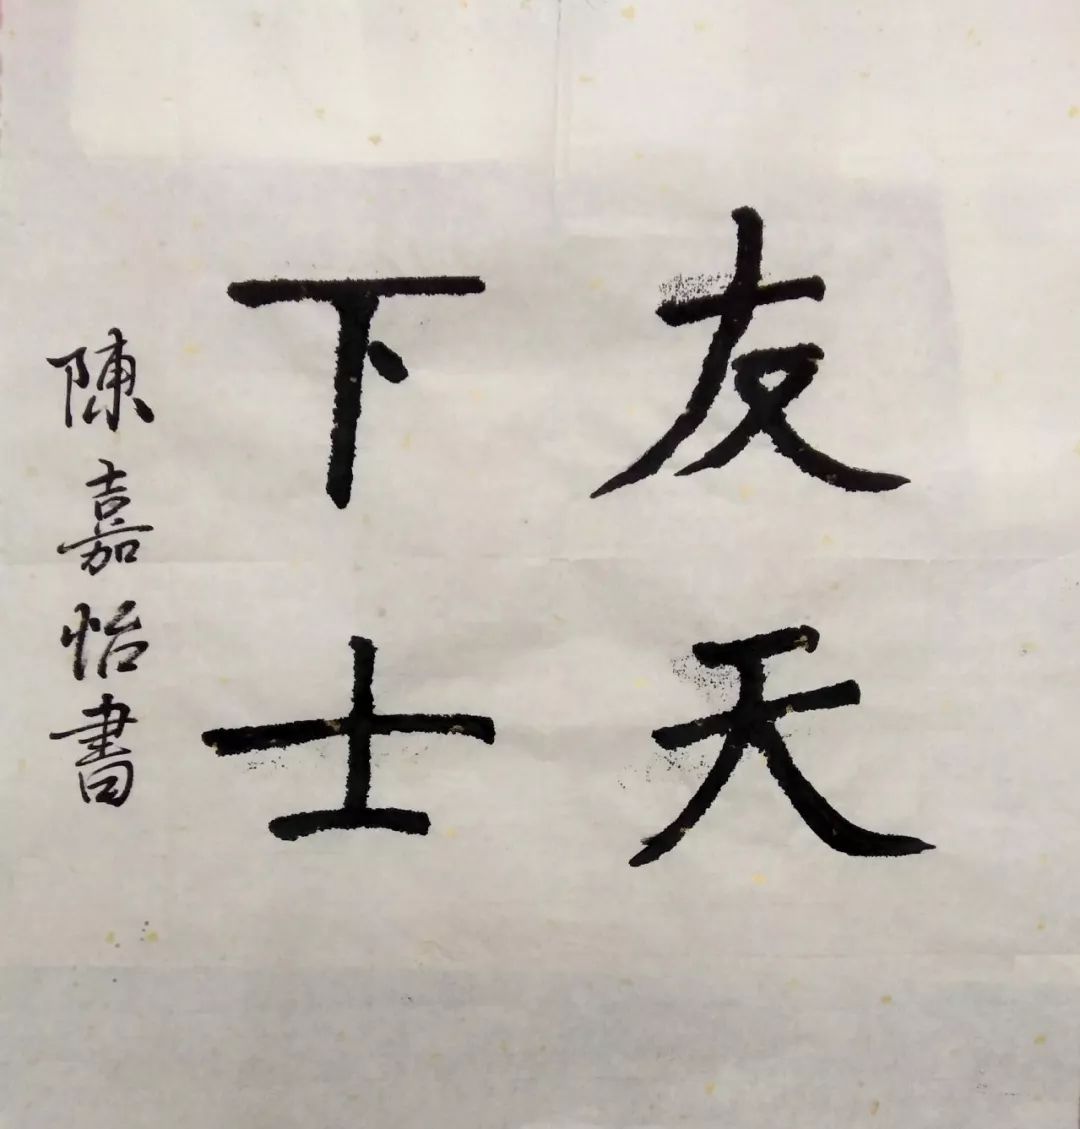 友天
下士
陳嘉怡書